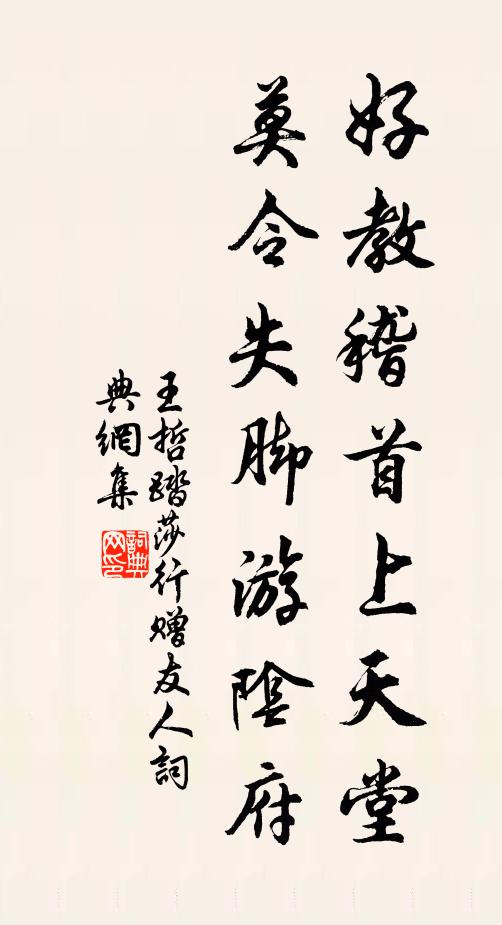 好教稽首上天堂
莫令失脚游陰府
王哲踏莎行赠友人詞
典網集
詞典
网印